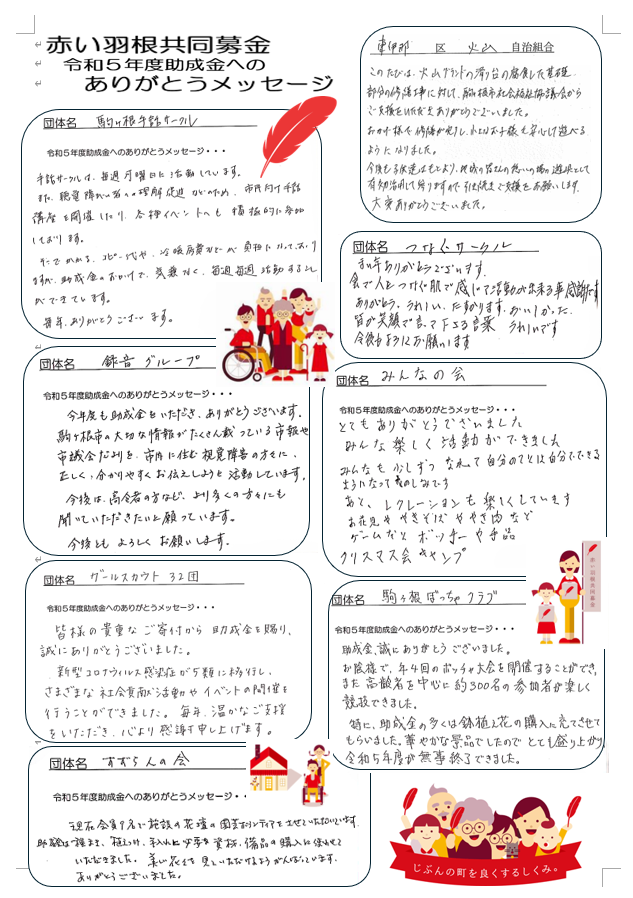 赤い羽根共同募金
令和５年度助成金への
ありがとうメッセージ
団体名 駒ヶ根手話サークル
令和５年度助成金へのありがとうメッセージ・・・
手話サークルは、毎週月曜日に活動しています。
また、聴覚障がい者への理解促進などのため、市内向け手話
講座を開催したり、各種イベントへも積極的に参加
しております。
コピー代や、冷暖房費などが負担になっており
ますが、助成金のおかげで、気兼なく、毎週毎週活動すること
ができています。
毎年、ありがとうございます。
団体名 録音グループ
令和５年度助成金へのありがとうメッセージ・・・
今年度も助成金をいただき、ありがとうございます。
駒ヶ根市の大切な情報がたくさん載っている市報や
市議会だよりを、市内に住む視覚障害の方々に、
正しく、分かりやすくお伝えしようと活動しています。
今後は、高令者の方など、より多くの方々にも
聞いていただきたいと願っています。
今後とも よろしく お願いします。
団体名 ガールスカウト 32団
令和５年度助成金へのありがとうメッセージ・・・
皆様の貴重なご寄付から 助成金を賜り、
誠にありがとうございました。
新型コロナウィルス感染症が5類に移行し、
さまざまな社会貢献活動やイベントの開催を
行うことができました。毎年、温かなご支援
をいただき、心より感謝申し上げます。
団体名 すずらんの会
令和５年度助成金へのありがとうメッセージ・・・
現在会員9名で施設の花壇の園芸ボランティアをさせていただいています。
助成金は種まき、植えつけ、手入れに必要な資材、備品の購入に使わせて
いただきました。美しい花々を見ていただけるようがんばっています。
ありがとうございました。
東伊那 区 火山 自治組合
このたびは、火山グランドの滑り台の腐食した基礎
部分の修繕工事に対して、駒ヶ根市社会福祉協議会から
ご支援をいただきありがとうございました。
おかげ様で修繕が完了し、小さなお子様も安心して遊べる
ようになりました。
今後も子供達はもとより、地域の皆さんの憩いの場の遊具として
有効活用して参りますので引き続きご支援をお願いします。
大変ありがとうございました。
団体名 つなぐサークル
まい年ありがとうございます。
会で人とつなぐ肌で感じて活動が出来る事 感謝です
ありがとう、うれしい、たすかります、
皆が笑顔で言って下さる言葉 うれしいです
今後もよろしくお願いします
団体名 みんなの会
令和５年度助成金へのありがとうメッセージ・・・
とても ありがとうございました
みんな 楽しく 活動が できました
みんなも 少しずつ なれて 自分のことは自分でできる
ようになって たのしみです
あと、レクレーションも 楽しくしています
お花見ややきそば ややき肉など
ゲームだと ボッチャーや手品
クリスマス会 キャンプ
団体名 駒ヶ根ぼっちゃクラブ
令和５年度助成金へのありがとうメッセージ・・・
助成金、誠にありがとうございました。
お陰様で、年4回のボッチャ大会を開催することができ、
また 高齢者を中心に約300名の参加者が楽しく
競技できました。
特に、助成金の多くは鉢植え花の購入に充てさせて
もらいました。華やかな景品でしたのでとても盛り上がり
令和5年度が無事終了できました。
赤い羽根共同募金
じぶんの町を良くするしくみ。